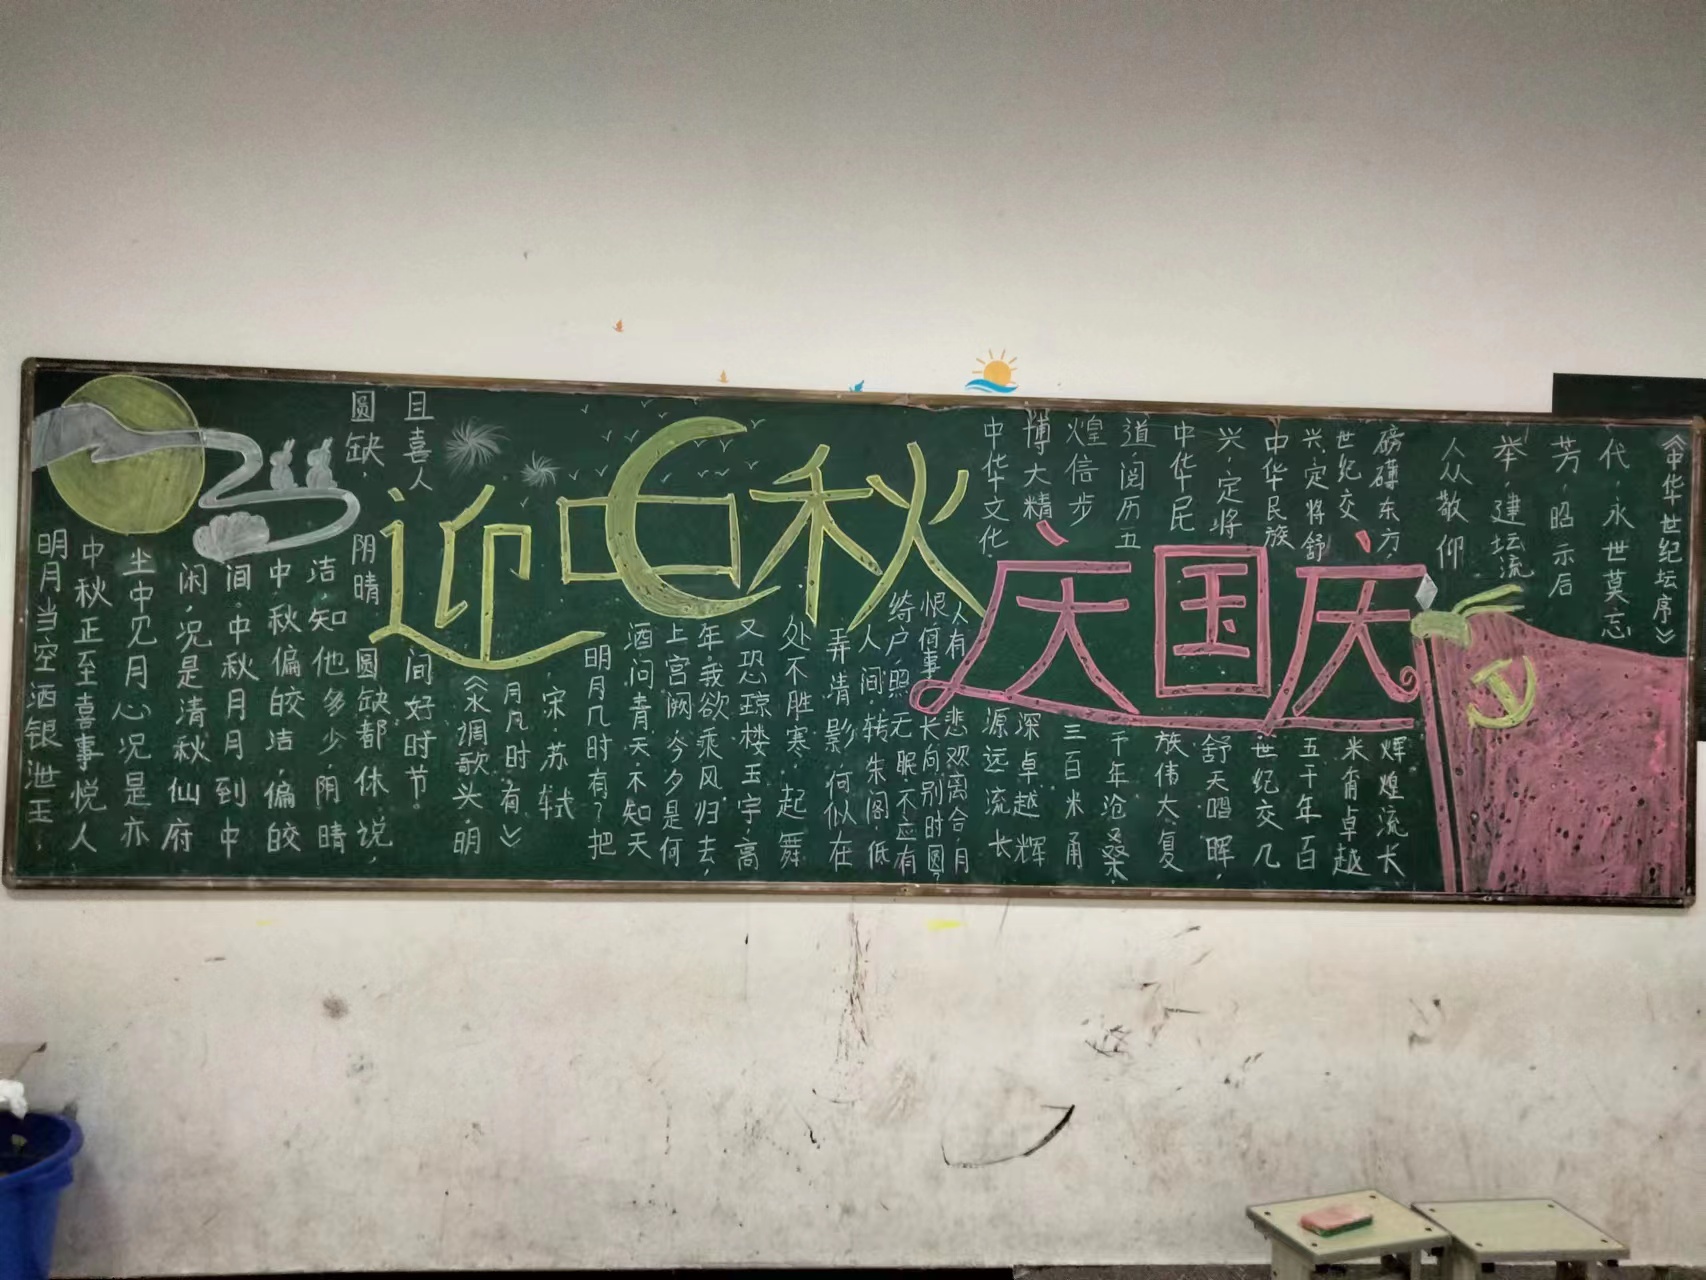 迎中秋
庆国庆
明月当空酒银泄玉,
中秋正至喜事悦人
坐中见月心况是亦
闲,况是清秋仙府
间,中秋月月到中
中秋偏皎洁,偏皎
洁,知他多少,阴晴
圆缺,阴晴圆缺都休说,
且喜人间好时节
《水调歌头·明
月几时有》
宋·苏轼
明月几时有?把
酒问青天。不知天
上宫阙,今夕是何
年。我欲乘风归去,
又恐琼楼玉宇,高
处不胜寒。起舞
弄清影,何似在
人间。转朱阁,低
绮户,照无眠。不应有
恨何事长向别时圆?
人有悲欢离合月
中华文化源远流长
博大精深卓越辉
煌信步三百米甬
道,阅历五千年沧桑,
中华民族伟大复
兴,定将舒天昭晖,
中华民族世纪交几
兴定将舒五千年百
世纪交米有卓越
磅礴东方辉煌流长
人从敬仰
举,建坛流
芳,昭示后
代,永世莫忘
《中华世纪坛序》